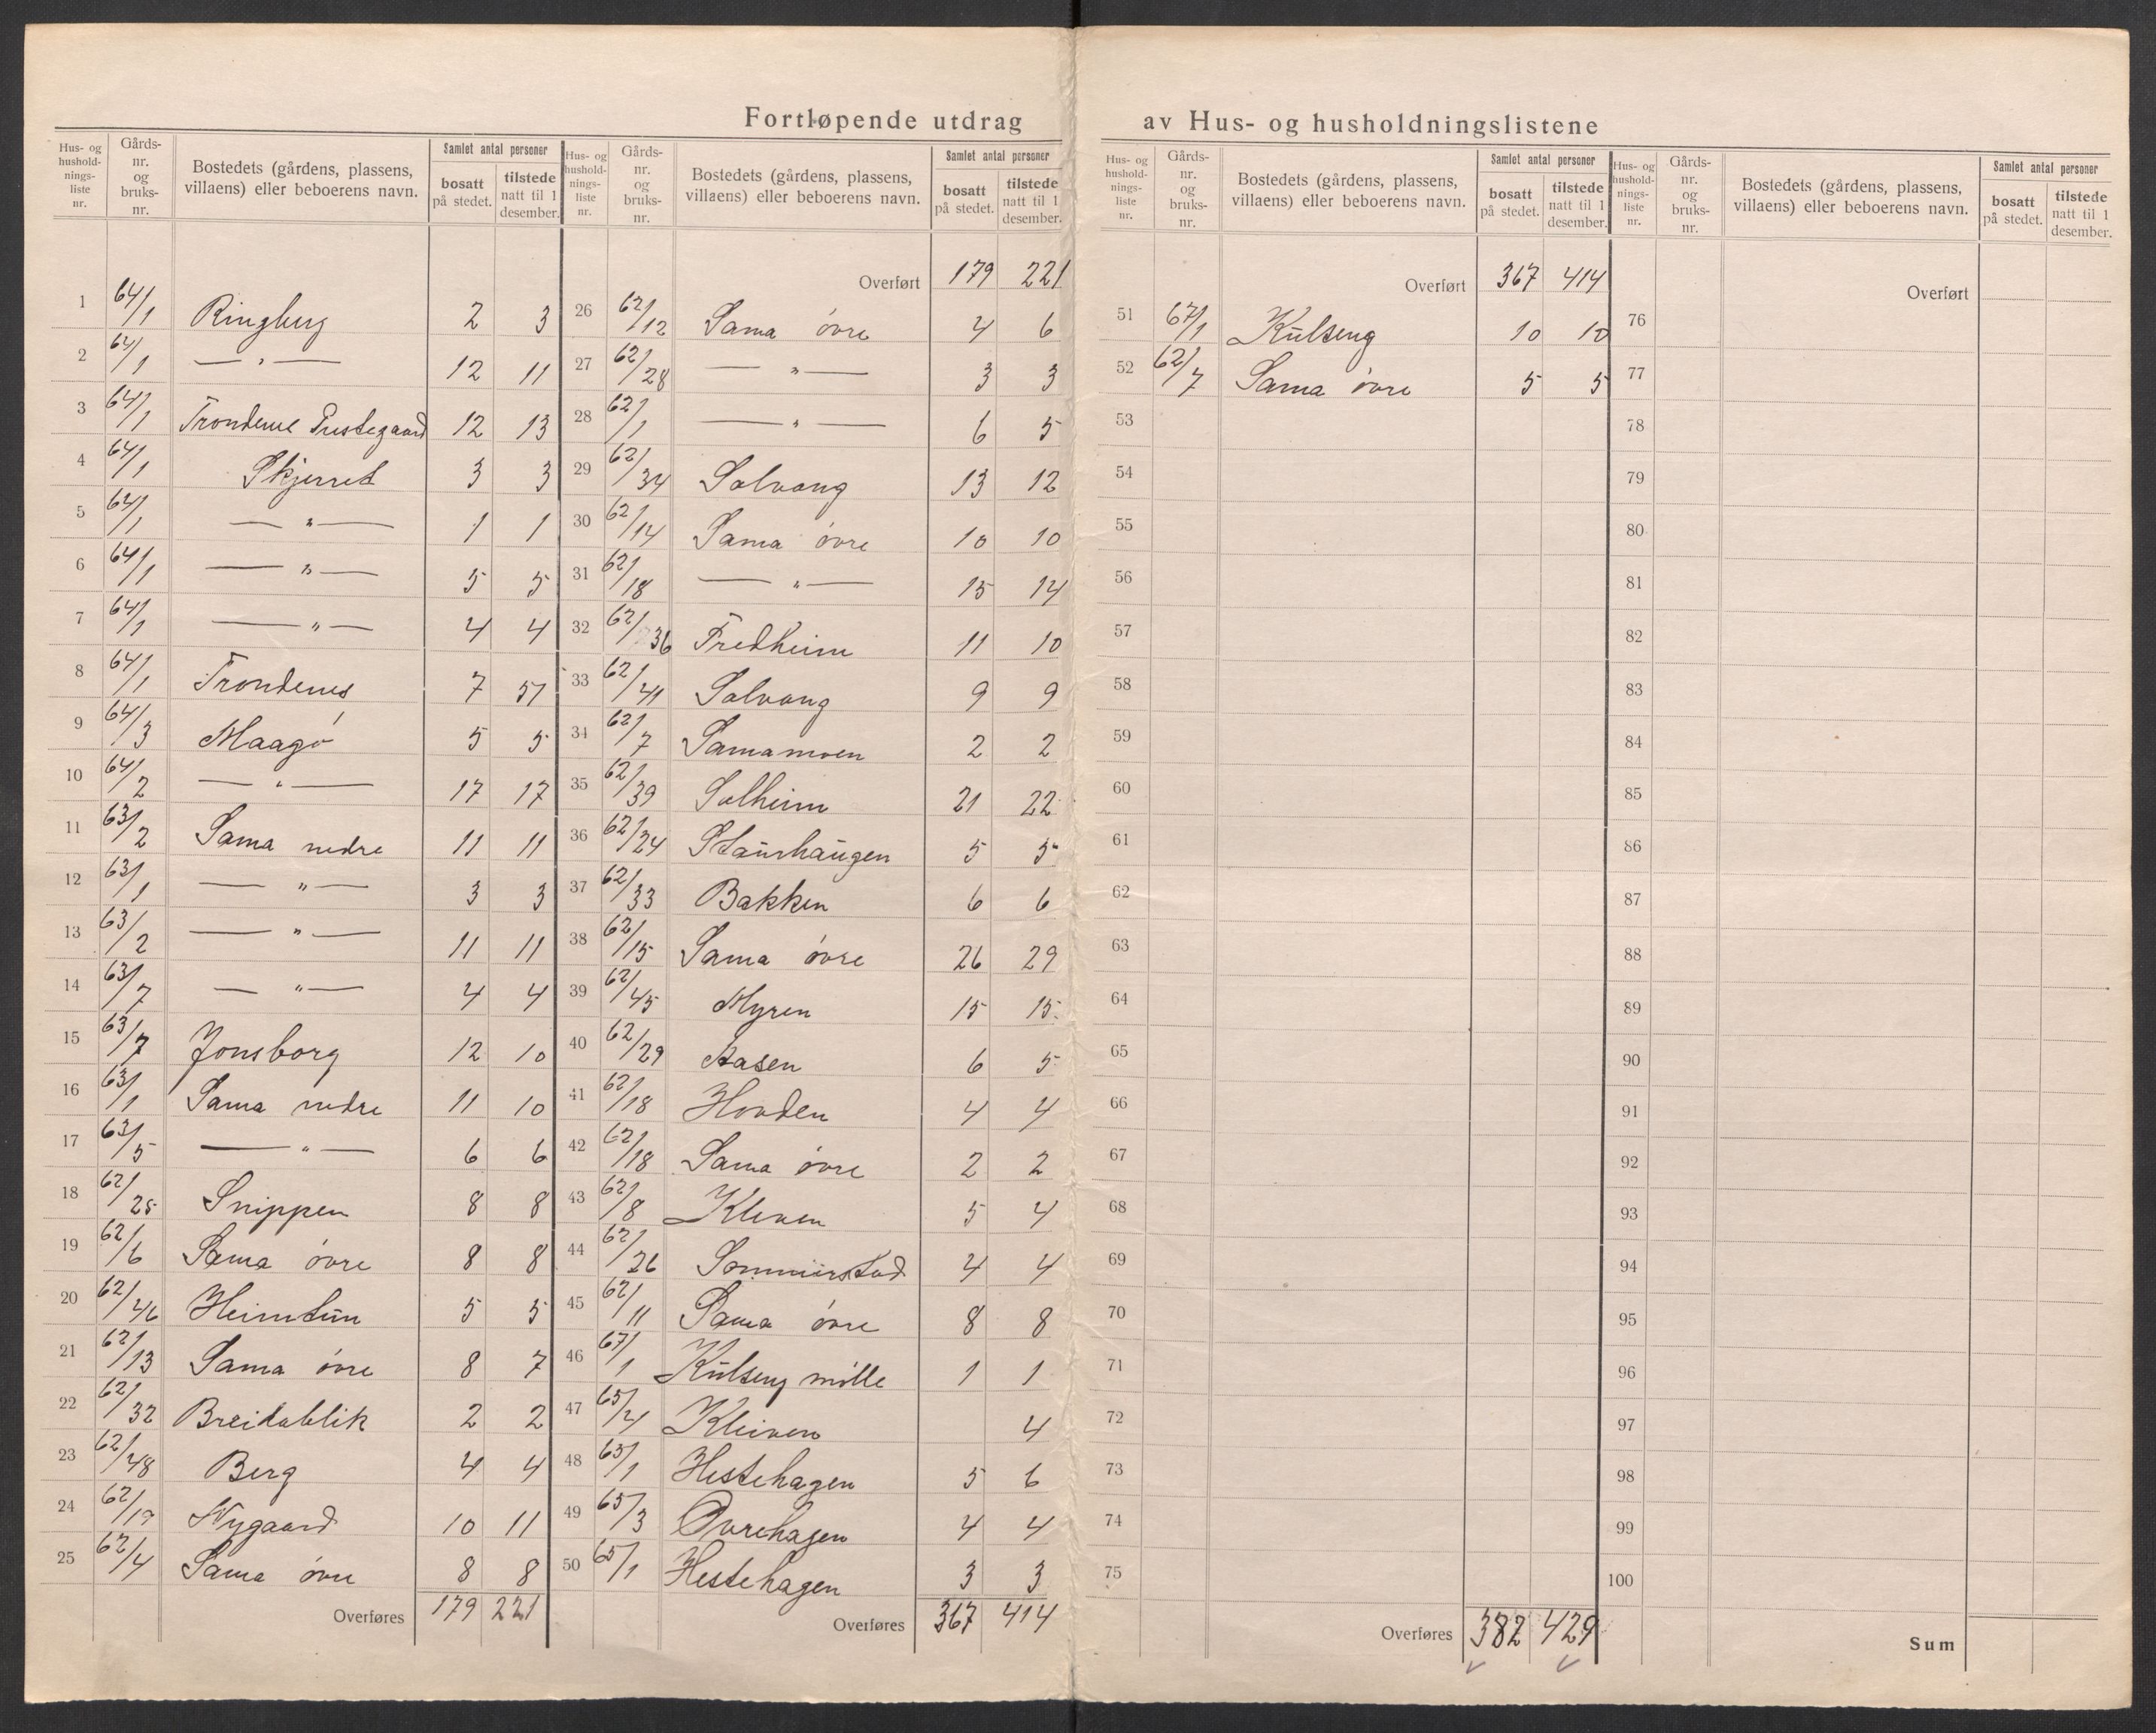 Fortløpende utdrag av Hus- og husholdningslistene
Hus- og hushold-nings-liste nr. | Gårds-nr. og bruks-nr. | Bostedets (gårdens, plassens, villaens) eller beboerens navn. | Samlet antal personer | bosatt på stedet. | tilstede natt til 1 desember.
1 64/1 Ringberg 2 3
2 64/1 — " — 12 11
3 64/1 Trondenes Prestegaard 12 13
4 64/1 Skjerret 3 3
5 64/1 — " — 1 1
6 64/1 — " — 5 5
7 64/1 — " — 4 4
8 64/1 Trondenes 7 51
9 64/3 Maagø 5 5
10 64/2 — " — 17 17
11 63/2 Sama nedre 11 11
12 63/1 — " — 3 3
13 63/2 — " — 11 11
14 63/7 — " — 4 4
15 63/7 Jonsborg 12 10
16 63/1 Sama nedre 11 10
17 63/5 — " — 6 6
18 62/25 Snippen 8 8
19 62/6 Sama øvre 8 8
20 62/46 Heimtun 5 5
21 62/13 Sama øvre 8 7
22 62/32 Breidablik 2 2
23 62/48 Berg 4 4
24 62/19 Nygaard 10 11
25 62/4 Sama øvre 8 8
Overføres 179 221
Hus- og hushold-nings-liste nr. | Gårds-nr. og bruks-nr. | Bostedets (gårdens, plassens, villaens) eller beboerens navn. | Samlet antal personer | bosatt på stedet. | tilstede natt til 1 desember.
Overført 179 221
26 62/12 Sama øvre 4 6
27 62/28 — " — 3 3
28 62/1 — " — 6 5
29 62/34 Solvang 13 12
30 62/14 Sama øvre 10 10
31 62/18 — " — 15 14
32 62/36 Fredheim 11 10
33 62/41 Solvang 9 9
34 62/7 Samamoen 2 2
35 62/39 Solheim 21 22
36 62/24 Staurhaugen 5 5
37 62/33 Bakken 6 6
38 62/15 Sama øvre 26 29
39 62/45 Myren 15 15
40 62/29 Aasen 6 5
41 62/18 Hovden 4 4
42 62/18 Sama øvre 2 2
43 62/8 Kleven 5 4
44 62/26 Sommerstad 4 4
45 62/11 Sama øvre 8 8
46 67/1 Kulseng mølle 1 1
47 65/4 Kleiven 4
48 65/1 Hestehagen 5 6
49 65/3 Øvrehagen 4 4
50 65/1 Hestehagen 3 3
Overføres 367 414
Hus- og hushold-nings-liste nr. | Gårds-nr. og bruks-nr. | Bostedets (gårdens, plassens, villaens) eller beboerens navn. | Samlet antal personer | bosatt på stedet. | tilstede natt til 1 desember.
Overført 367 414
51 67/1 Kulseng 10 10
52 62/7 Sama øvre 5 5
53
54
55
56
57
58
59
60
61
62
63
64
65
66
67
68
69
70
71
72
73
74
75
Overføres 382 429
Hus- og hushold-nings-liste nr. | Gårds-nr. og bruks-nr. | Bostedets (gårdens, plassens, villaens) eller beboerens navn. | Samlet antal personer | bosatt på stedet. | tilstede natt til 1 desember.
Overført
76
77
78
79
80
81
82
83
84
85
86
87
88
89
90
91
92
93
94
95
96
97
98
99
100
Sum